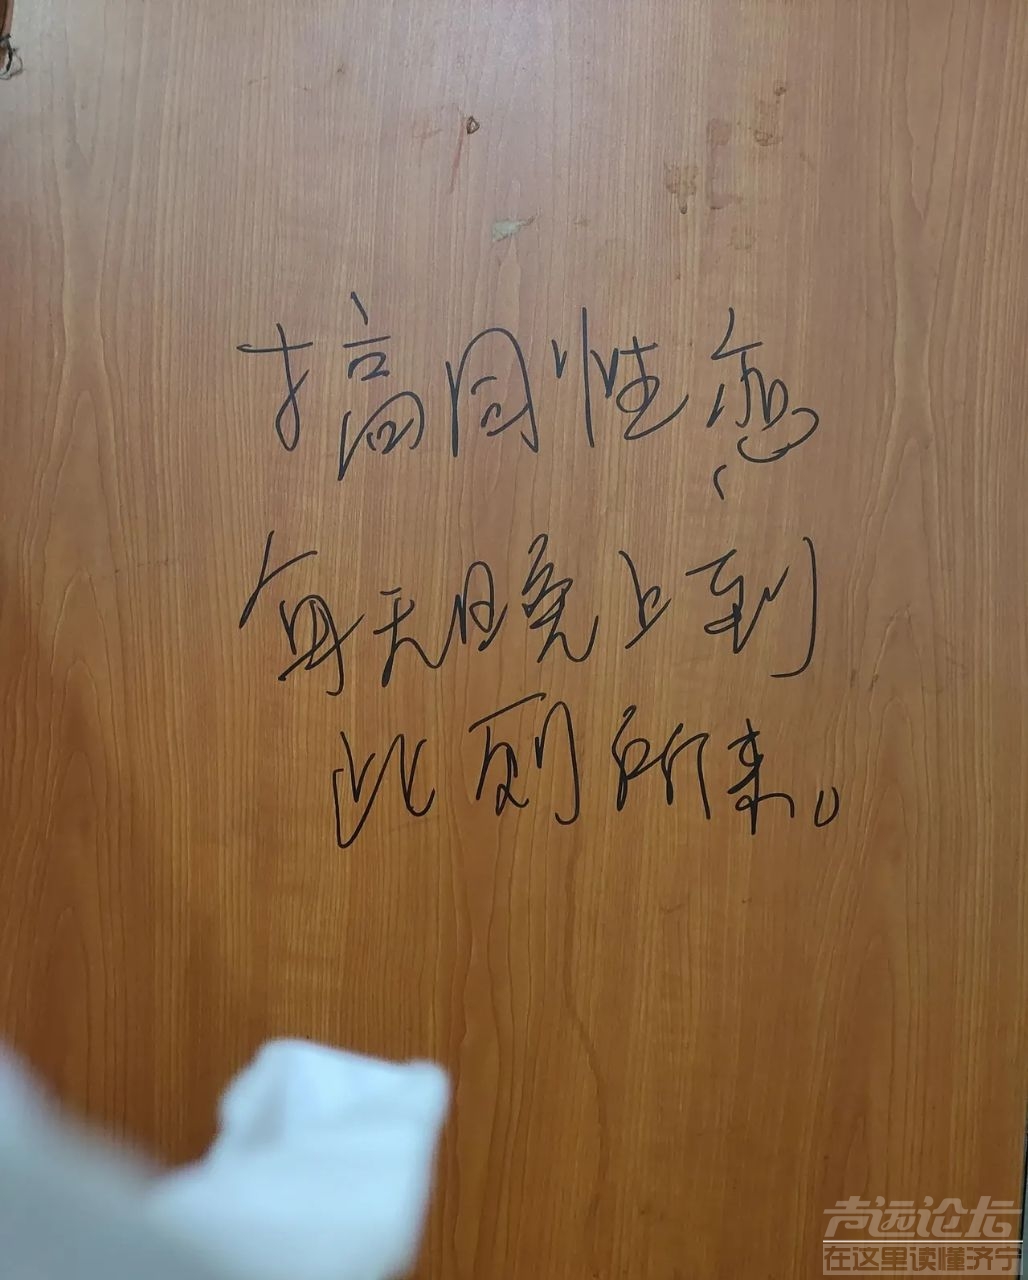 搞同性恋
每天晚上到
此厕所来。
声远论坛
在这里读懂济宁